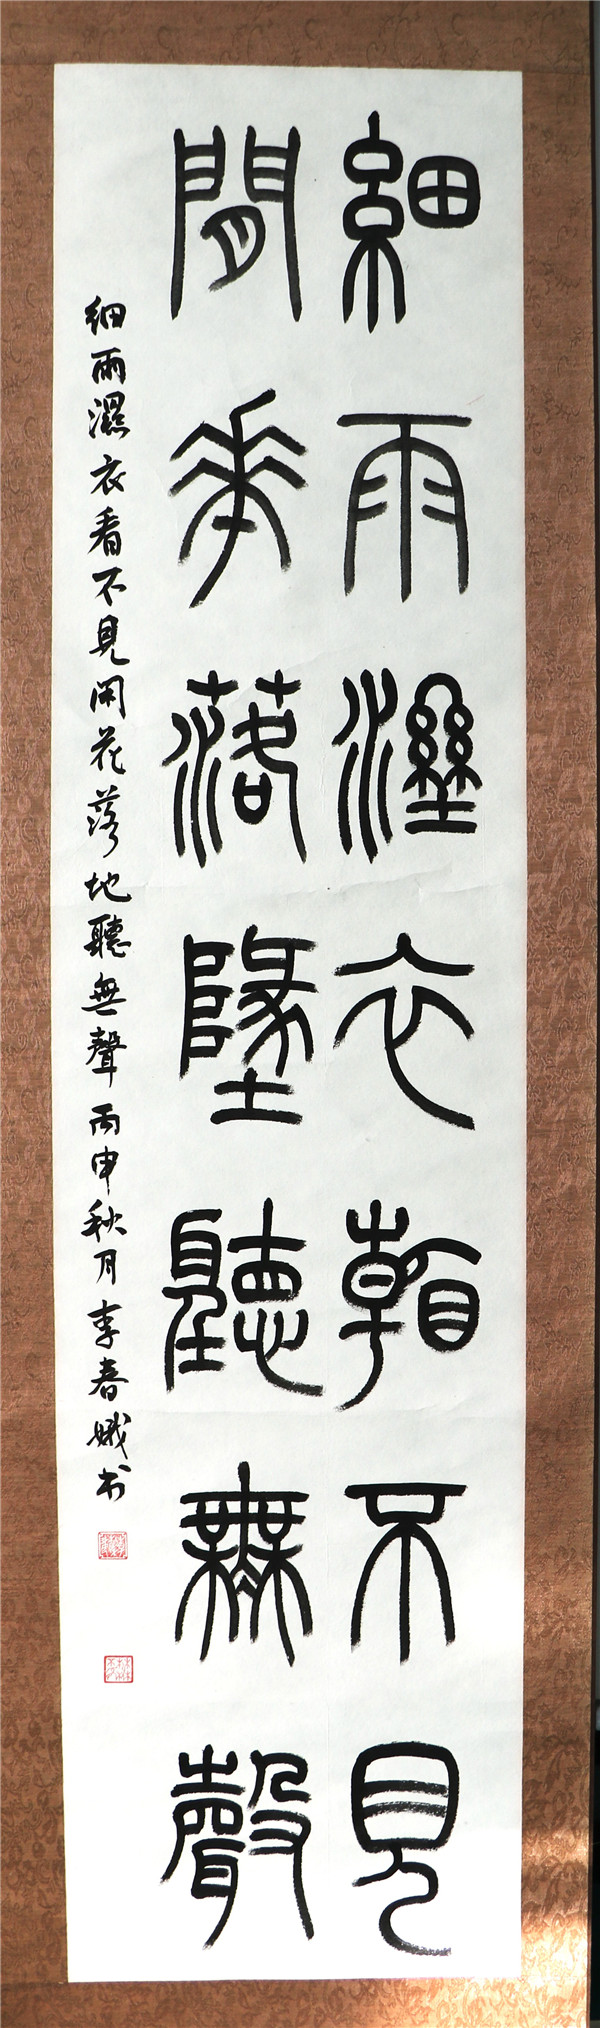 細雨溼衣看不見
閒花落墬聽無聲
細雨濕衣看不見閑花落地聽無聲丙申秋月李春娥书